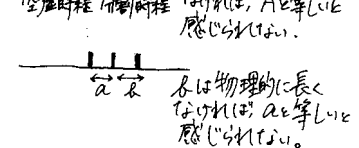 空虚時程 分割時程 なければ、Aと等しいと
感じられない.
a b
bは物理的に長く
なければ、aと等しいと
感じられない。